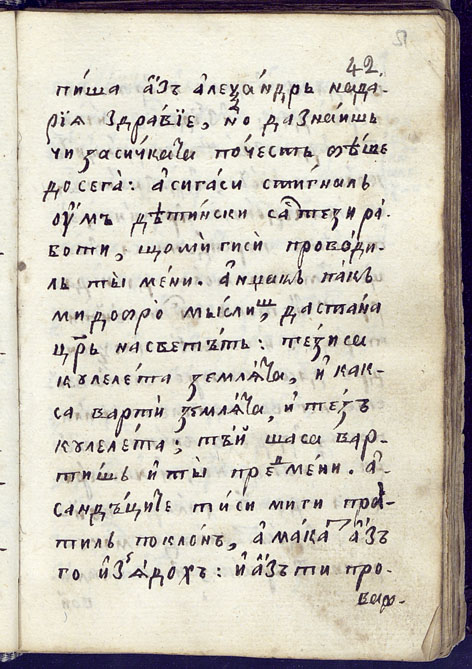 42.
пи́ша а҆́зъ алеѯа́ндръ на да-
рїѧ здра́вїе, но да зна́ишь
чи за си́чката по́честь бѣ́ше
досега̀: а҆ сига́ си сти́гналь
ѹ҆́мъ дѣти́нски са те́зи ра́-
боти, що мѝ ги сѝ прово́ди-
ль ты̀ ме́ни. а҆нџакъ па́къ
ми добрѐ мы́слишъ, да ста́на
цр҃ь на све́тътъ: те́зи са
кулеле́та землѧ́та, и҆ как-
са вартѝ землѧ́та, и҆ те́зъ
кулеле́та; тъ́й ща са вар-
ти́шь и҆ ты̀ пред ме́ни. а҆
санду́щите ти́ си ми ги пра́-
тиль покло́нъ, а҆ ма́ка а҆́зъ
го и҆зѧ́дохъ: и҆ а҆́зъ ти про-
вар-